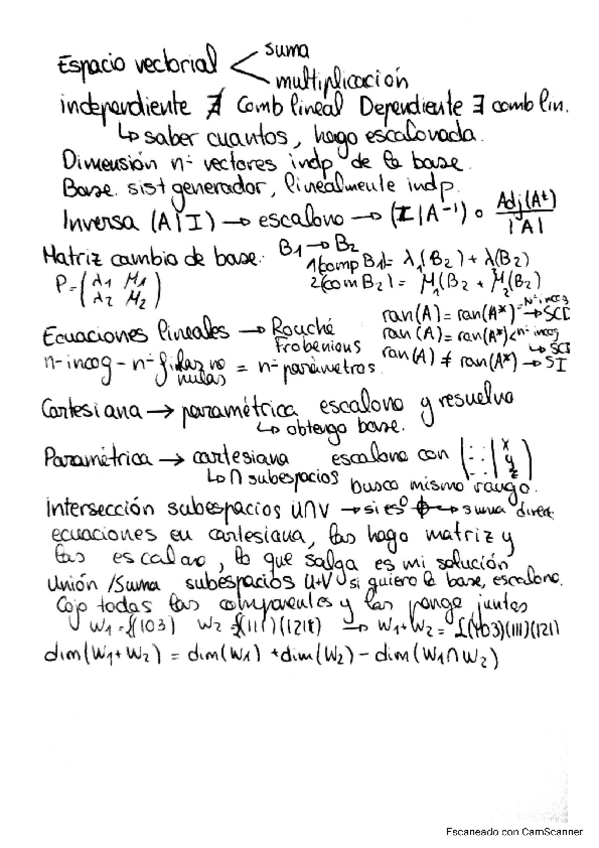 Espacio vectorial < suma
multiplicación
independiente ∄ Comb lineal Dependiente ∃ comb lin.
↳ saber cuantos, hago escalonada.
Dimensión nº vectores indp de la base.
Base. sist generador, linealmente indp.
Inversa (A|I) → escalono → (I|A⁻¹) o Adj(Aᵗ)/|A|
Matriz cambio de base: B1 → B2
1(comp B1)= λ1(B2) + λ(B2)
P=(λ1 M1
λ2 M2)
2(com B2)= M1(B2 + M2(B2)
ran(A) = ran(A*) = nº incog → SCD
Ecuaciones lineales → Rouché Frobenious
ran(A) = ran(A*) < nº incog ↳ SCI
ran(A) ≠ ran(A*) → SI
n-incog - nº filas no nulas = nº parámetros
Cartesiana → paramétrica escalono y resuelvo
↳ obtengo base.
Paramétrica → cartesiana escalono con (::|x y z)
↳ ∩ subespacios busco mismo rango.
Intersección subespacios U∩V → si es ϕ → suma direct.
ecuaciones en cartesiana, las hago matriz y
las escalono, lo que salga es mi solución
Unión /Suma subespacios U+V si quiero la base, escalono.
Cojo todas las componentes y las pongo juntas
W1 = £(103) W2 = £(111)(121) → W1+W2 = £(103)(111)(121)
dim(W1+W2) = dim(W1) + dim(W2) - dim(W1∩W2)
Escaneado con CamScanner